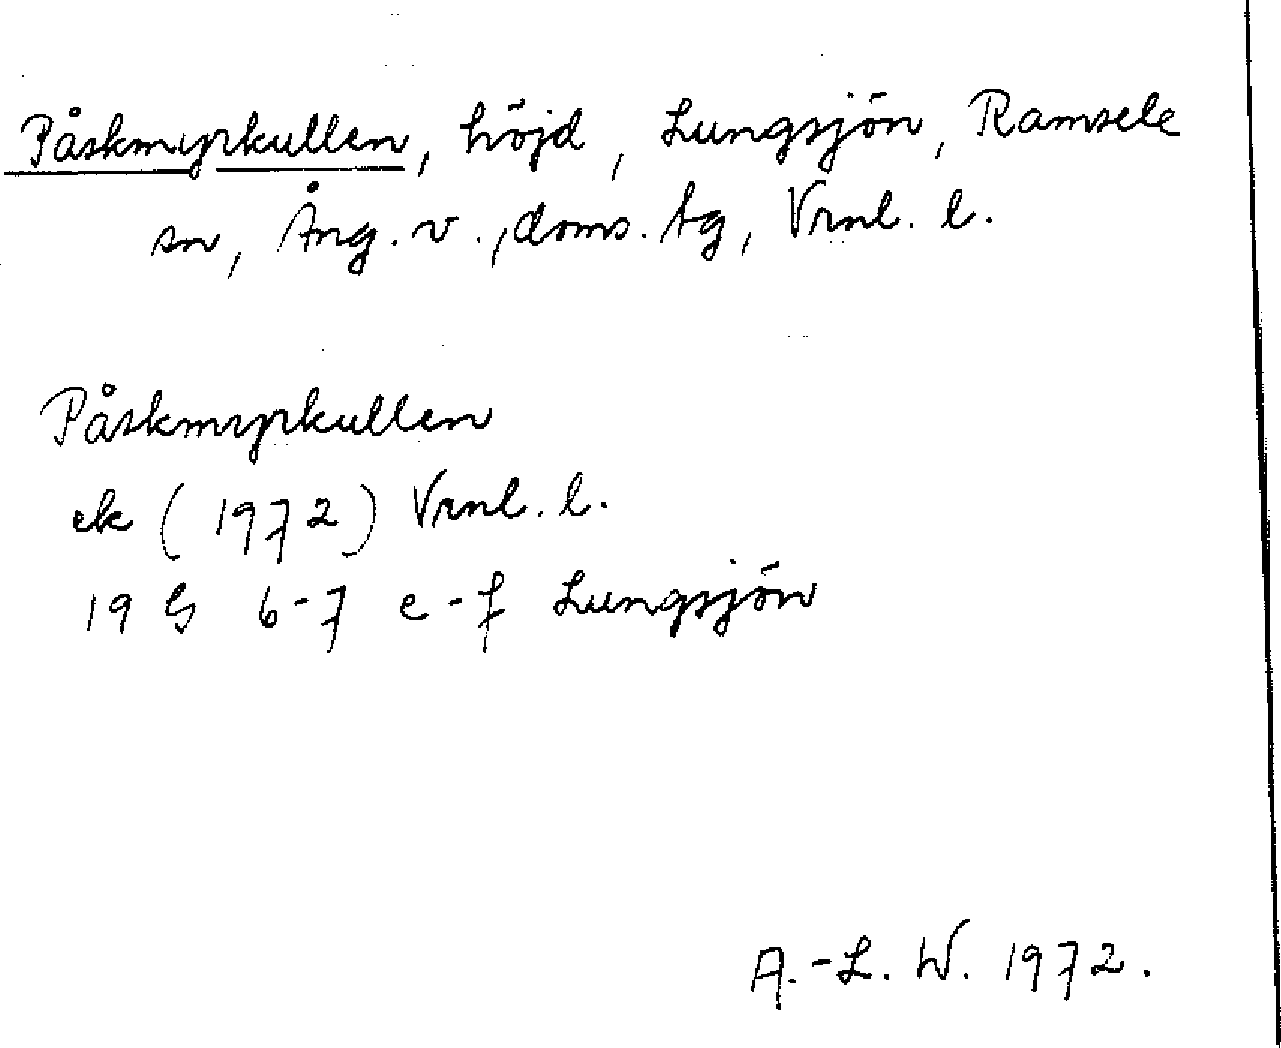 Påskmyrkullen, höjd, Lungsjön, Ramsele
sn, Ång. v., doms. tg, Vrnl. l.
Påskmyrkullen
ek (1972) Vrnl. l.
19 G 6-7 e-f Lungsjön
A.-L. W. 1972.